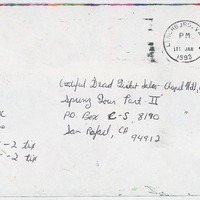 LEESBURG, V
PM
JAN
1993
Grateful Dead Ticket Sales - Chapel Hill,
Spring Tour Part II
P.O. Box C-S, 8190
San Rafael, CA
94912
-2 tix
-2 tix